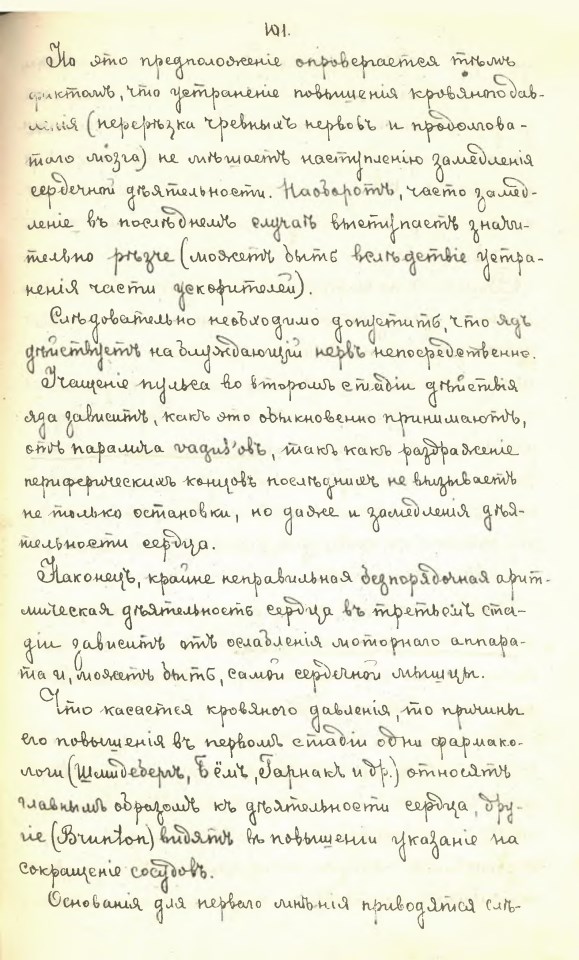 101.
Но это предположеніе опровергается тѣмъ
фактомъ, что устраненіе повышенія кровяного дав-
ленія (перерѣзка чревныхъ нервовъ и продолгова-
таго мозга) не мѣшаетъ наступленію замедленія
сердечной дѣятельности. Наоборотъ, часто замед-
леніе въ послѣднемъ случаѣ выступаетъ значи-
тельно рѣзче (можетъ быть вслѣдствіе устра-
ненія части ускорителей).
Слѣдовательно необходимо допустить, что ядъ
дѣйствуетъ на блуждающій нервъ непосредственно.
Учащеніе пульса во второмъ стадіи дѣйствія
яда зависитъ, какъ это обыкновенно принимаютъ,
отъ паралича vagus'овъ, такъ какъ раздраженіе
периферическихъ концовъ послѣднихъ не вызываетъ
не только остановки, но даже и замедленія дѣя-
тельности сердца.
Наконецъ, крайне неправильная безпорядочная арит-
мическая дѣятельность сердца въ третьемъ ста-
діи зависитъ отъ ослабленія моторнаго аппара-
та и, можетъ быть, самой сердечной мышцы.
Что касается кровяного давленія, то причины
его повышенія въ первомъ стадіи одни фармако-
логи (Шмидебергъ, Бёмъ, Гарнакъ и др.) относятъ
главнымъ образомъ къ дѣятельности сердца, дру-
гіе (Brunton) видятъ въ повышеніи указаніе на
сокращеніе сосудовъ.
Основанія для перваго мнѣнія приводятся слѣ-